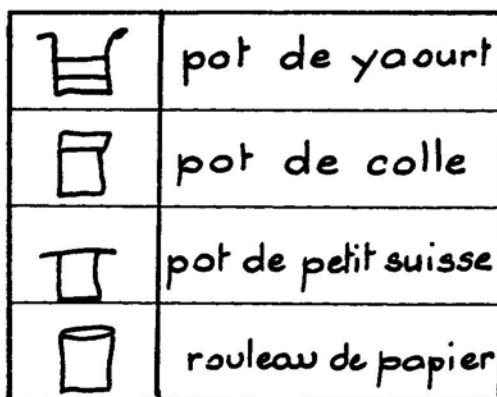 pot de yaourt
pot de colle
pot de petit suisse
rouleau de papier